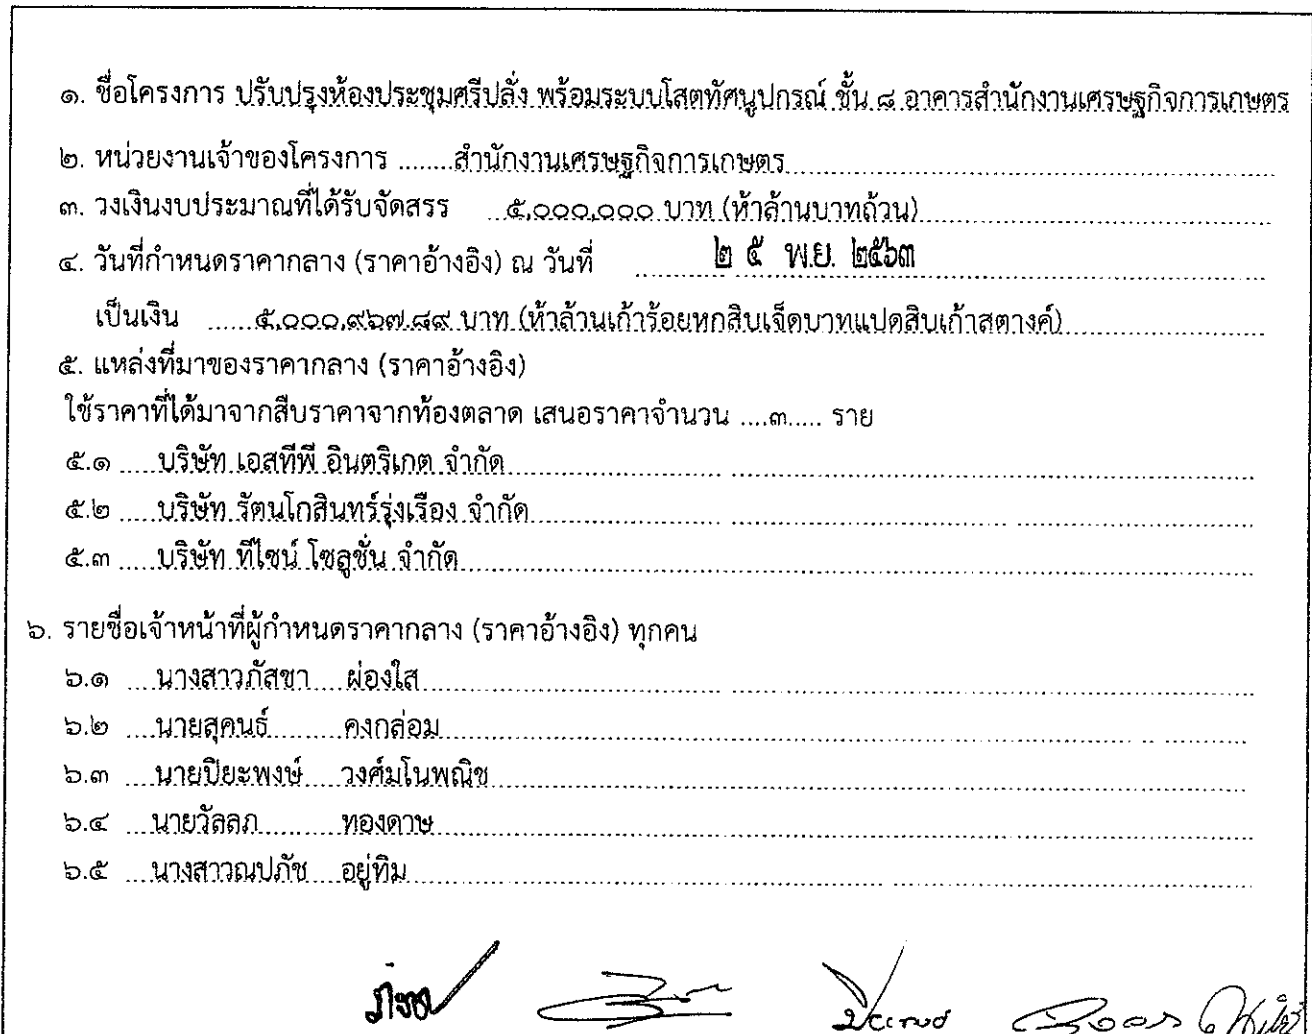 ๑. ชื่อโครงการ ปรับปรุงห้องประชุมศรีปลั่ง พร้อมระบบโสตทัศนูปกรณ์ ชั้น ๘ อาคารสำนักงานเศรษฐกิจการเกษตร
๒. หน่วยงานเจ้าของโครงการ ........สำนักงานเศรษฐกิจการเกษตร
๓. วงเงินงบประมาณที่ได้รับจัดสรร ...๕,๐๐๐,๐๐๐ บาท (ห้าล้านบาทถ้วน)
๔. วันที่กำหนดราคากลาง (ราคาอ้างอิง) ณ วันที่ ๒ ๕ พ.ย. ๒๕๖๓
เป็นเงิน ......๕,๐๐๐,๙๖๗.๘๙ บาท (ห้าล้านเก้าร้อยหกสิบเจ็ดบาทแปดสิบเก้าสตางค์)
๕. แหล่งที่มาของราคากลาง (ราคาอ้างอิง)
ใช้ราคาที่ได้มาจากสืบราคาจากท้องตลาด เสนอราคาจำนวน ....๓..... ราย
๕.๑ .....บริษัท เอสทีพี อินตริเกต จำกัด
๕.๒ .....บริษัท รัตนโกสินทร์รุ่งเรือง จำกัด
๕.๓ .....บริษัท ทีไซน์ โซลูชั่น จำกัด
๖. รายชื่อเจ้าหน้าที่ผู้กำหนดราคากลาง (ราคาอ้างอิง) ทุกคน
๖.๑ ....นางสาวภัสชา ผ่องใส
๖.๒ ....นายสุคนธ์ คงกล่อม
๖.๓ ....นายปิยะพงษ์ วงศ์มโนพณิช
๖.๔ ...นายวัลลภ ทองดาษ
๖.๕ ....นางสาวณปภัช อยู่ทิม